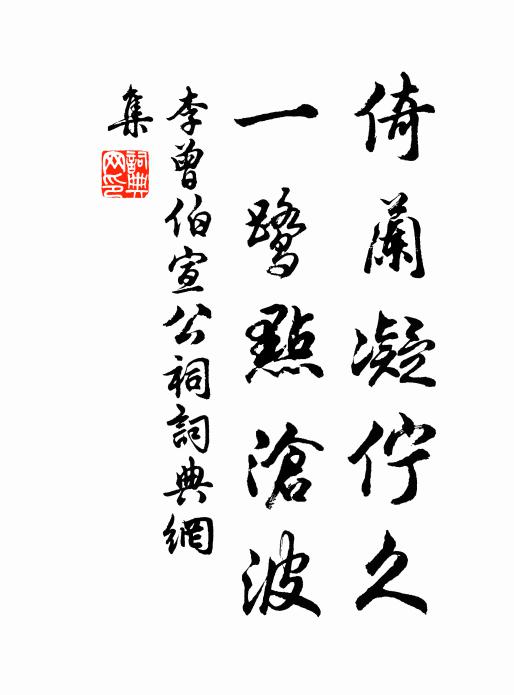 倚蘭凝佇久
一鷺點滄波
李曾伯宣公祠詞典網
集
詞典
网印